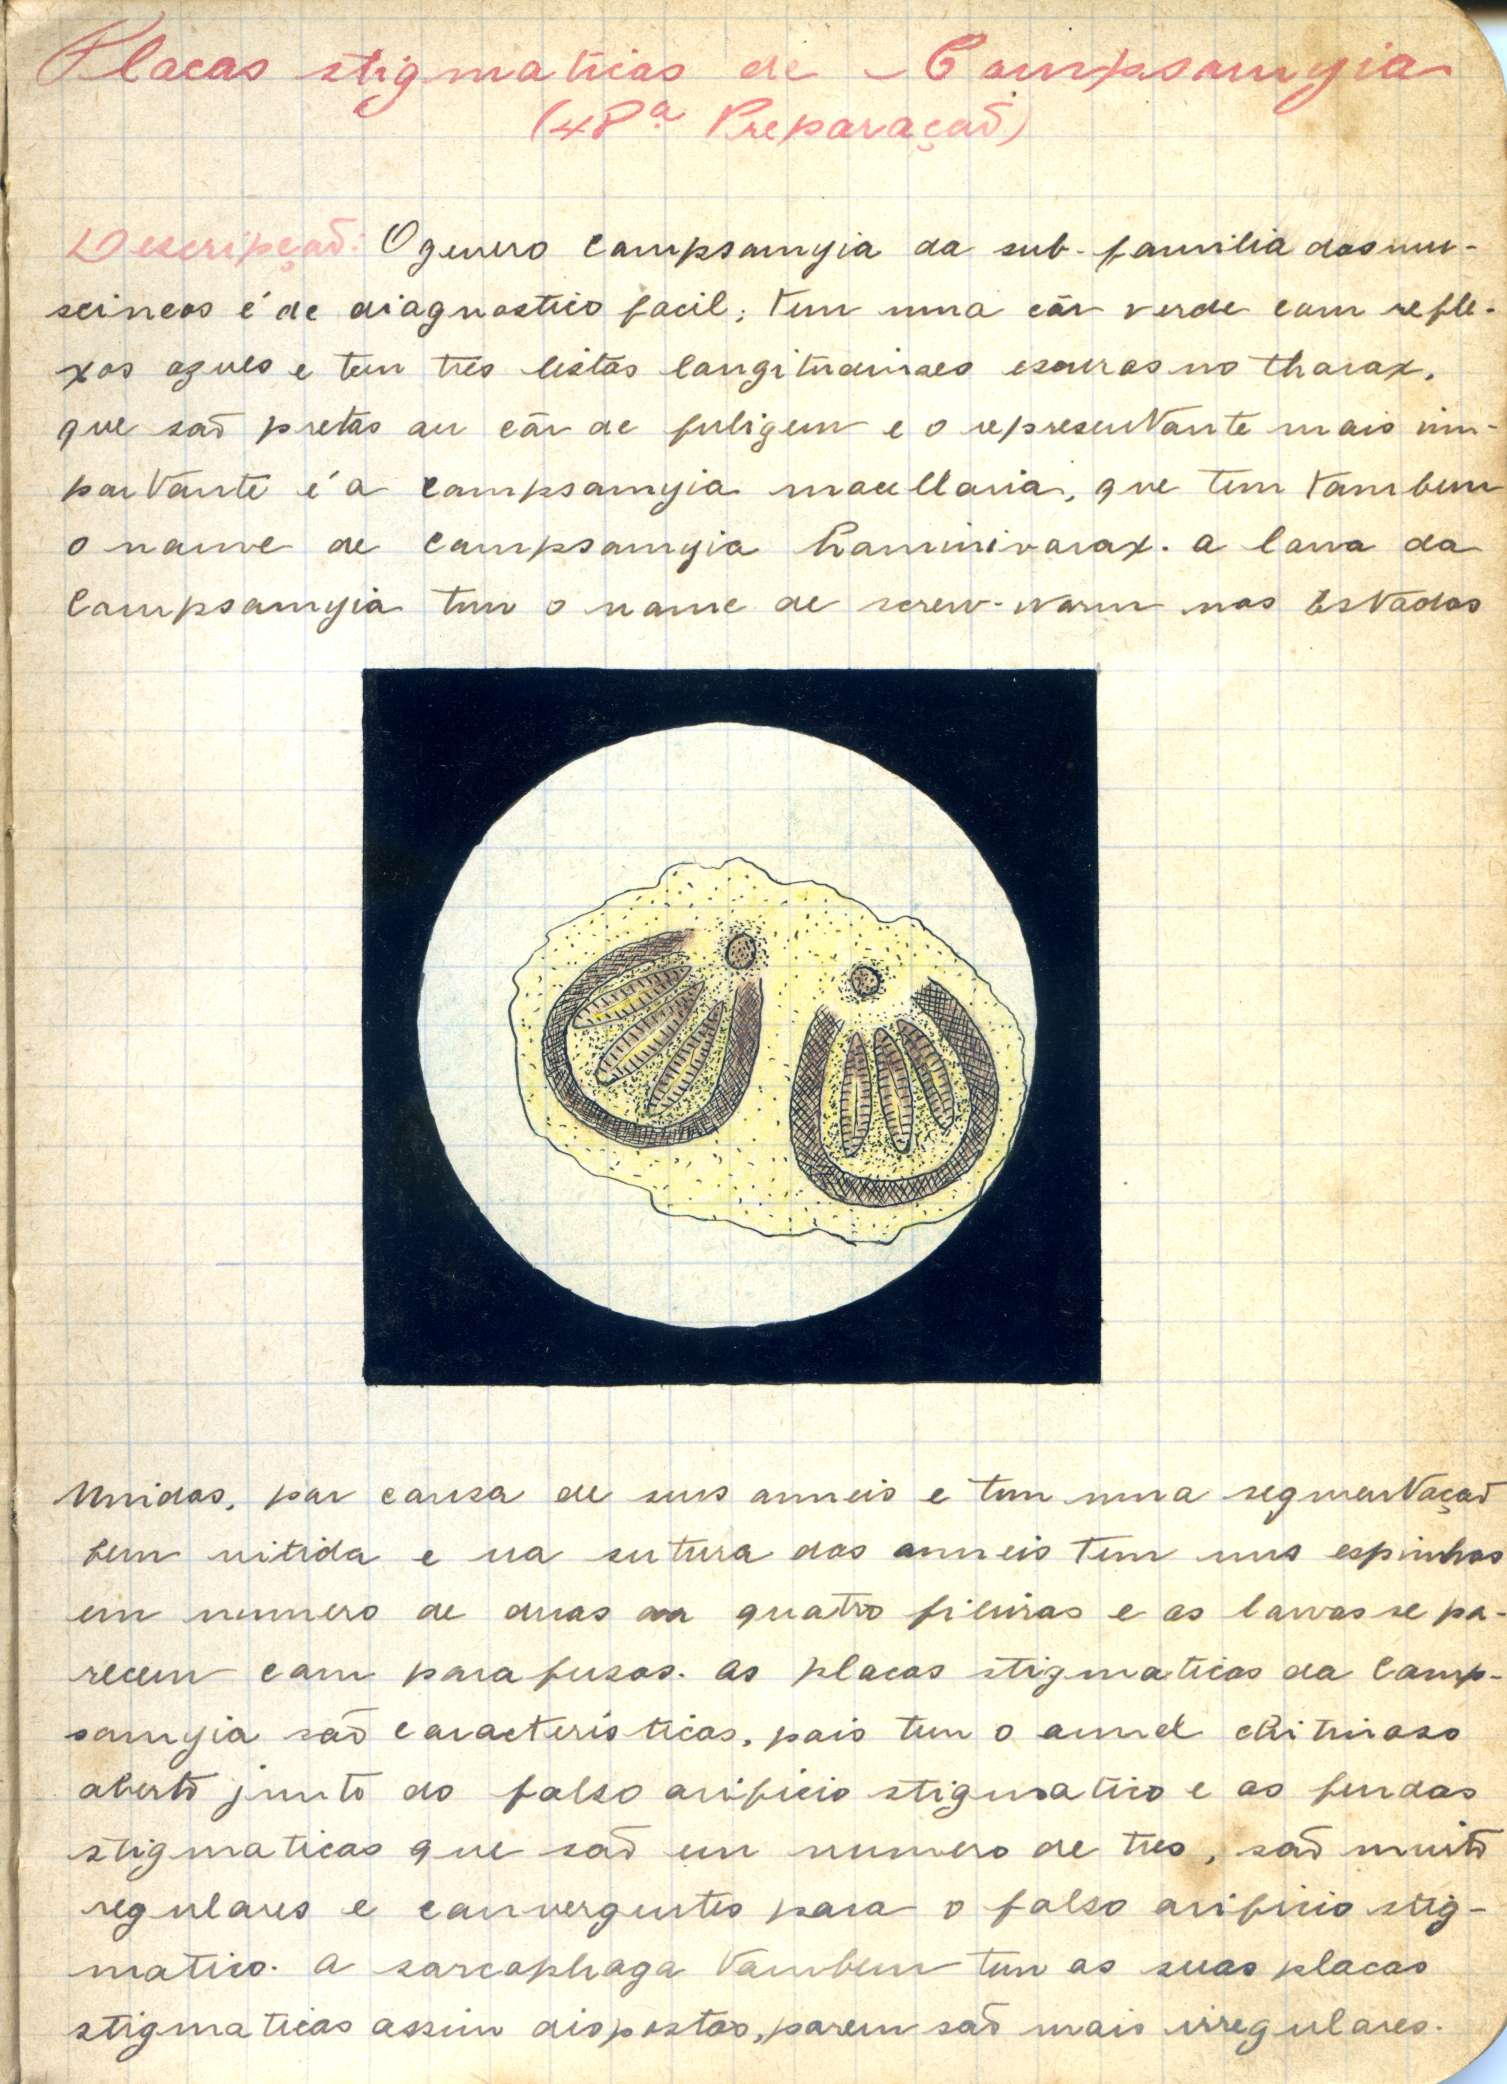 Placas stigmaticas de Compsomyia
(48ª Preparação)
Descripção: O genero Compsomyia da sub-familia dos mus-
scineos é de diagnostico facil; tem uma côr verde com refle-
xos azues e tem tres listas longitudinaes escuras no thorax,
que são pretas ou côr de fuligem e o representante mais im-
portante é a Compsomyia macellaria, que tem tambem
o nome de Compsomyia hominivorax. A larva da
Compsomyia tem o nome de screw-worm nos Estados
Unidos, por causa de seus anneis e tem uma segmentação
bem nitida e na sutura dos anneis tem uns espinhos
em numero de duas ou quatro fileiras e as larvas se pa-
recem com parafusos. As placas stigmaticas da Comp-
somyia são caracteristicas, pois tem o annel chitinoso
aberto junto do falso orificio stigmatico e as fendas
stigmaticas que são em numero de tres, são muito
regulares e convergentes para o falso orificio stig-
matico. A sarcophaga tambem tem as suas placas
stigmaticas assim dispostas, porem são mais irregulares.